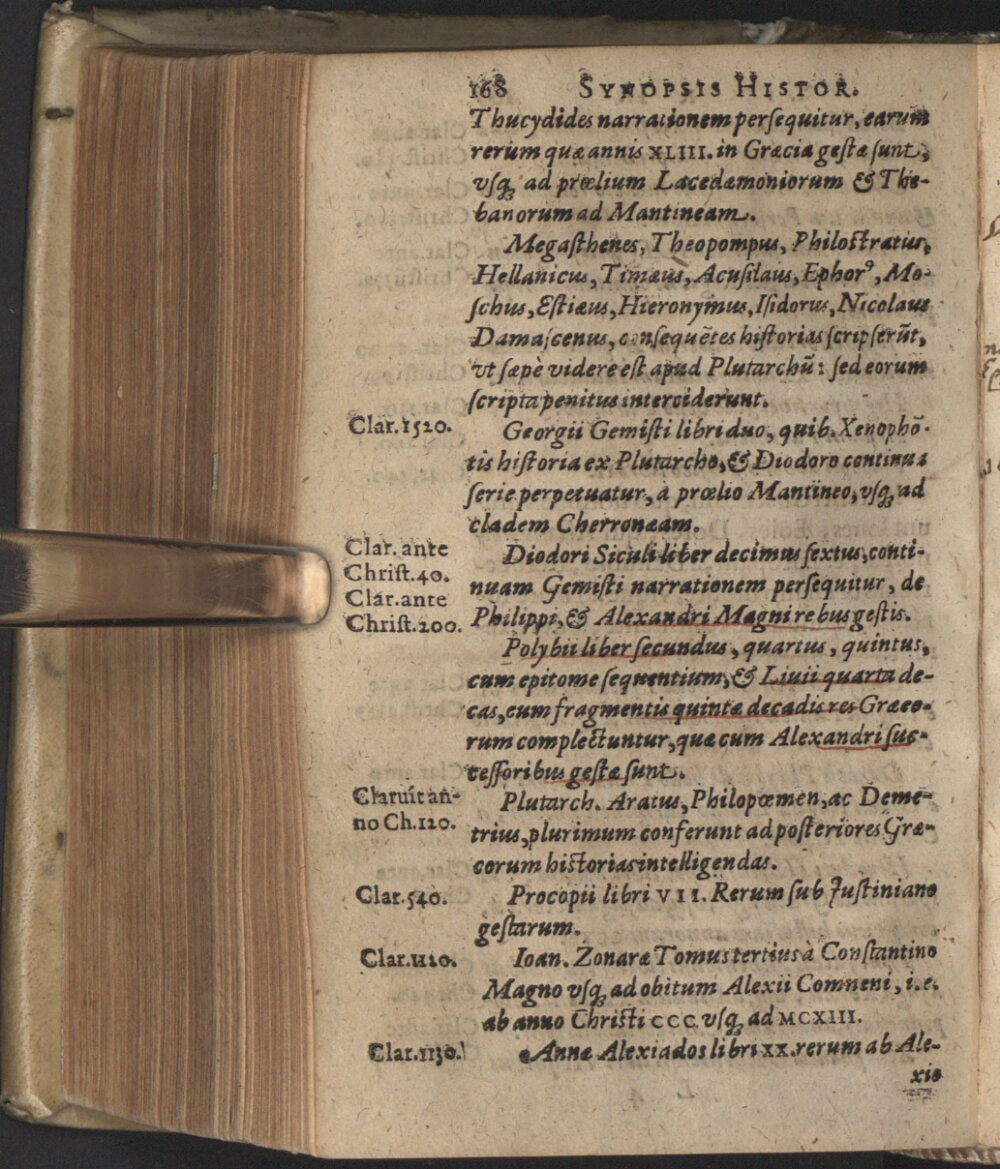 168 SYNOPSIS HISTOR.
Thucydides narrationem perſequitur, earum
rerum quæ annis XLIII. in Græcia geſtæ ſunt,
vſq; ad prœlium Lacedæmoniorum & The-
banorum ad Mantineam.
Megaſthenes, Theopompus, Philoſtratius,
Hellanicus, Timæus, Acuſilaus, Ephorꝰ, Mo-
ſchus, Eſtiæus, Hieronymus, Iſidorus, Nicolaus
Damaſcenus, conſequẽtes hiſtorias ſcripſerũt,
vt ſæpè videre eſt apud Plutarchũ: ſed eorum
ſcripta penitus interciderunt.
Clar. 1520. Georgii Gemiſti libri duo, quib. Xenophõ-
tis hiſtoria ex Plutarcho, & Diodoro continua
ſerie perpetuatur, à prœlio Mantineo, vſq; ad
cladem Cherronæam.
Clar. ante Diodori Siculi liber decimus ſextus, conti-
Chriſt. 40. nuam Gemiſti narrationem perſequitur, de
Clar. ante
Chriſt. 200. Philippi, & Alexandri Magni rebus geſtis.
Polybii liber ſecundus, quartus, quintus,
cum epitome ſequentium, & Liuii quarta de-
cas, cum fragmentis quintæ decadis res Græco-
rum complectuntur, quæ cum Alexandri ſuc-
ceſſoribus geſtæ ſunt.
Claruit an- Plutarch. Aratus, Philopœmen, ac Deme-
no Ch. 120. trius, plurimum conferunt ad poſteriores Græ-
corum hiſtorias intelligendas.
Clar. 540. Procopii libri VII. Rerum ſub Juſtiniano
geſtarum.
Clar. 1120. Ioan. Zonaræ Tomus tertius à Conſtantino
Magno vſq; ad obitum Alexii Comneni, i.e.
ab anno Chriſti CCC. vſq; ad MCXIII.
Clar. 1130. Annæ Alexiados libri XX. rerum ab Ale-
xio